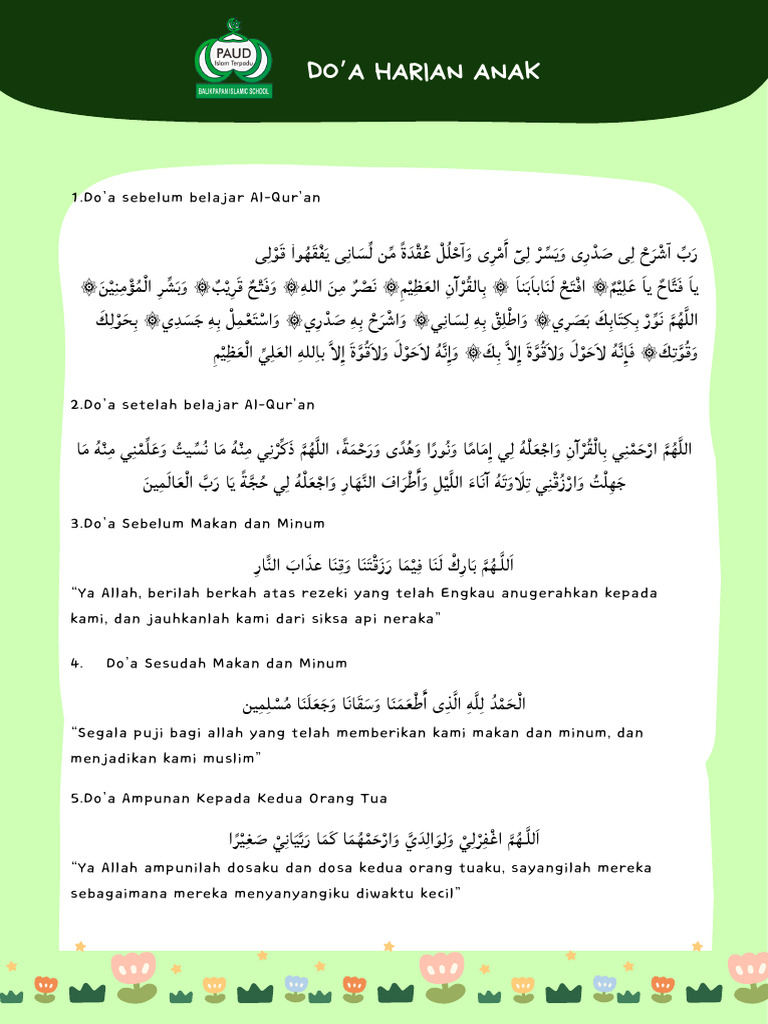 PAUD
Islam Terpadu
BALIKPAPAN ISLAMIC SCHOOL
DO'A HARIAN ANAK
1.Do'a sebelum belajar Al-Qur'an
رَبِّ ٱشْرَحْ لِى صَدْرِى وَيَسِّرْ لِىٓ أَمْرِى وَٱحْلُلْ عُقْدَةً مِّن لِّسَانِى يَفْقَهُوا۟ قَوْلِى
ياَ فَتَّاحٌ ياَ عَلِيْمٌ۞ افْتَحْ لَنَاباَبَناَ ۞ بِالقُرْآنِ العَظِيْمِ۞ نَصْرٌ مِنَ اللهِ۞ وَفَتْحٌ قَرِيْبٌ۞ وَبَشِّرِ الْمُؤْمِنِيْنَ۞
اللَّهُمَّ نَوِّرْ بِكِتَابِكَ بَصَرِي۞ وَاطْلِقْ بِهِ لِسَانِي۞ وَاشْرَحْ بِهِ صَدْرِي۞ وَاسْتَعْمِلْ بِهِ جَسَدِي۞ بِحَوْلِكَ
وَقُوَّتِكَ۞ فَإِنَّهُ لاَحَوْلَ وَلاَقُوَّةَ إِلاَّ بِكَ۞ وَإِنَّهُ لاَحَوْلَ وَلاَقُوَّةَ إِلاَّ بِاللهِ العَلِيِّ الْعَظِيْمِ
2.Do'a setelah belajar Al-Qur'an
اللَّهُمَّ ارْحَمْنِي بِالْقُرْآنِ وَاجْعَلْهُ لِي إِمَامًا وَنُورًا وَهُدًى وَرَحْمَةً، اللَّهُمَّ ذَكِّرْنِي مِنْهُ مَا نُسِّيتُ وَعَلِّمْنِي مِنْهُ مَا
جَهِلْتُ وَارْزُقْنِي تِلَاوَتَهُ آنَاءَ اللَّيْلِ وَأَطْرَافَ النَّهَارِ وَاجْعَلْهُ لِي حُجَّةً يَا رَبَّ الْعَالَمِينَ
3.Do'a Sebelum Makan dan Minum
اَللَّهُمَّ بَارِكْ لَنَا فِيْمَا رَزَقْتَنَا وَقِنَا عذَابَ النَّارِ
“Ya Allah, berilah berkah atas rezeki yang telah Engkau anugerahkan kepada
kami, dan jauhkanlah kami dari siksa api neraka”
4. Do'a Sesudah Makan dan Minum
الْحَمْدُ لِلَّهِ الَّذِى أَطْعَمَنَا وَسَقَانَا وَجَعَلَنَا مُسْلِمِين
“Segala puji bagi allah yang telah memberikan kami makan dan minum, dan
menjadikan kami muslim”
5.Do'a Ampunan Kepada Kedua Orang Tua
اَللَّهُمَّ اغْفِرْلِيْ وَلِوَالِدَيَّ وَارْحَمْهُمَا كَمَا رَبَّيَانِيْ صَغِيْرًا
“Ya Allah ampunilah dosaku dan dosa kedua orang tuaku, sayangilah mereka
sebagaimana mereka menyanyangiku diwaktu kecil”